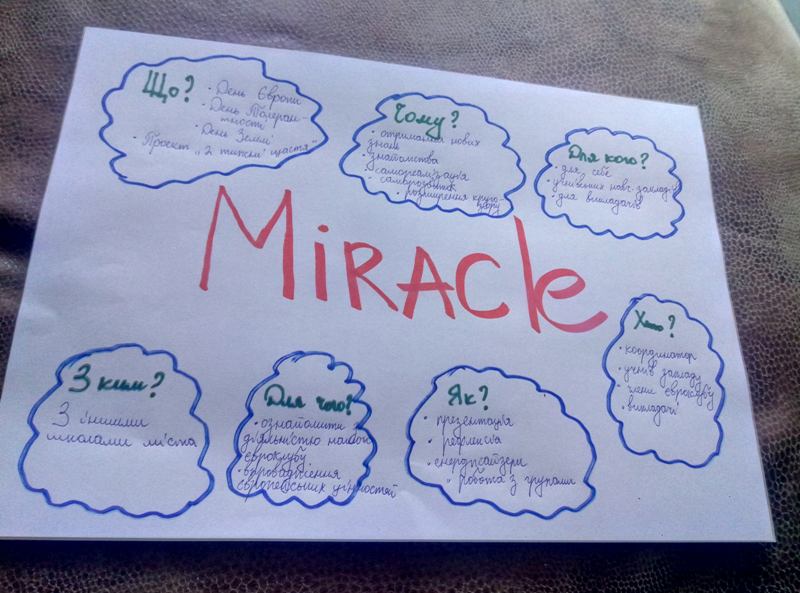 Що?
• День Європи
• День Толеран-
тності
• День Землі
• Проект „2 тижні щастя“
Чому?
• отримання нових
знань
• знайомства
• самореалізація
• саморозвиток
• розширення круго-
зору
Для кого?
• для себе
• учнівських навч. закладів
• для викладачів
MiRACle
Хто?
• координатор
• учнів закладу
• члени євроклубу
• викладачі
З ким?
З іншими
школами міста
Для чого?
• ознайомити з
діяльністю нашого
євроклубу
• впровадження
європейських цінностей
Як?
• презентація
• рефлексія
• енерджайзери
• робота з групами